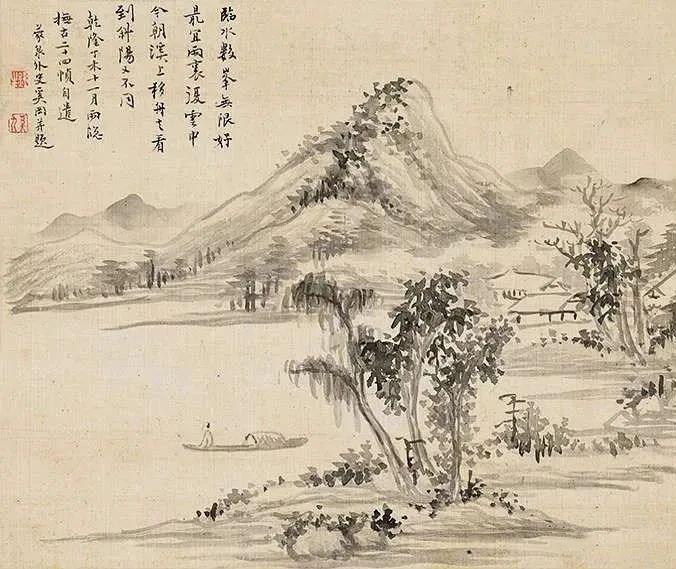 臨水數峯無限好
最宜雨裏浸雲中
今朝溪上移舟去看
到斜陽又不同
乾隆丁未十一月雨窓
撫古二十四幀自遣
蒙泉外史奚岡并題